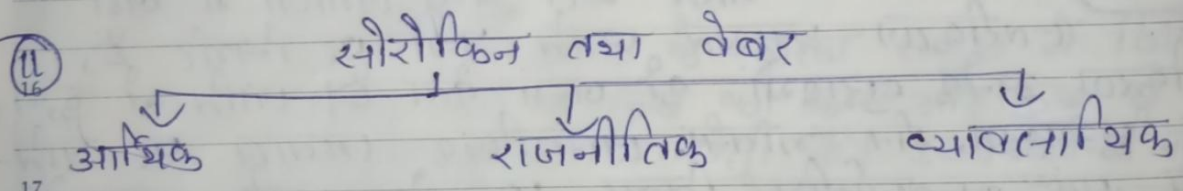 11 सोरोकिन तथा वेबर
16
आर्थिक राजनीतिक व्यावसायिक
17